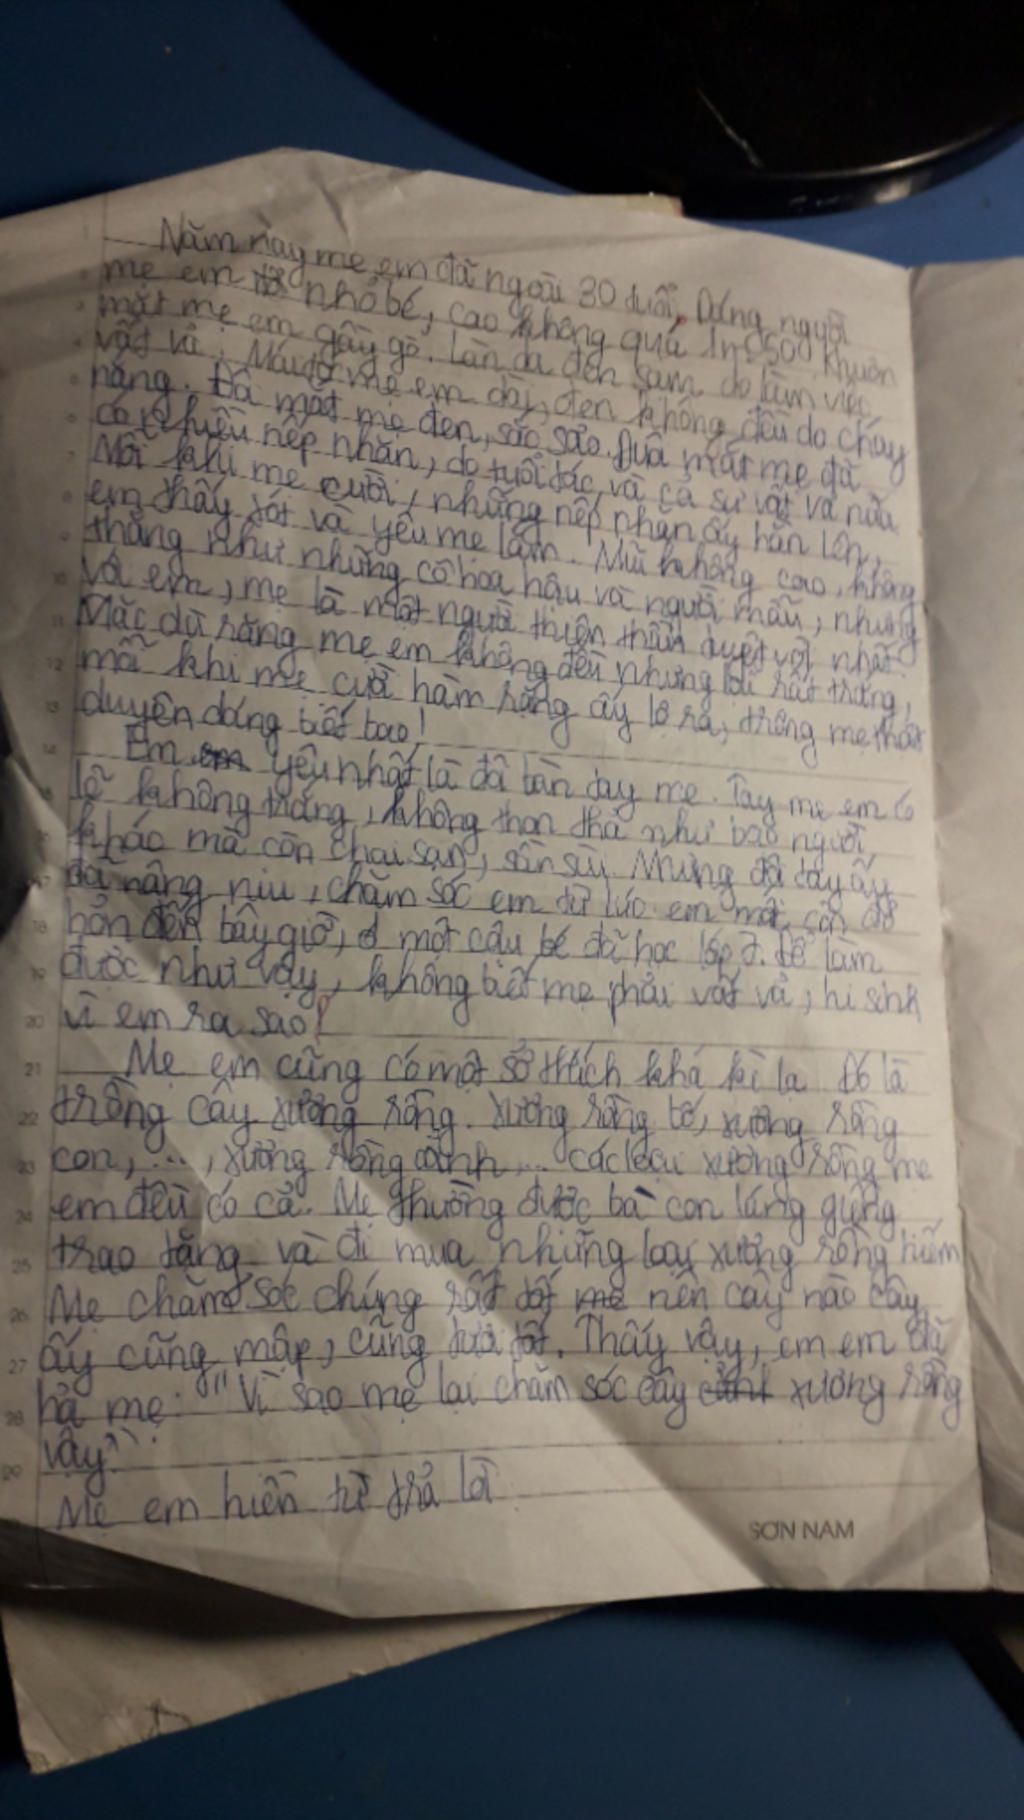 Năm nay mẹ em đã ngoài 30 tuổi. Dáng người
mẹ em nhỏ bé, cao không quá 1m50. Khuôn
mặt mẹ em gầy gò. Làn da đen sạm do làm việc
vất vả. Mái tóc mẹ em dài, đen không đều do cháy
nắng. Đôi mắt mẹ đen, sắc sảo. Đuôi mắt mẹ đã
có nhiều nếp nhăn, do tuổi tác và cả sự vất vả nữa.
Mỗi khi mẹ cười, những nếp nhăn ấy hằn lên,
em thấy xót và yêu mẹ lắm. Mũi không cao, không
thẳng như những cô hoa hậu và người mẫu, nhưng
với em, mẹ là một người thiên thần tuyệt vời nhất.
Mặc dù răng mẹ em không đều nhưng lại rất trắng,
mỗi khi mẹ cười hàm răng ấy lộ ra, trông mẹ thật
duyên dáng biết bao!
Em yêu nhất là đôi bàn tay mẹ. Tay mẹ em có
lẽ không trắng, không thon thả như bao người
kháo mà còn chai sạn, sần sùi. Nhưng đôi tay ấy
đã nâng niu, chăm sóc em từ lúc em mới còn đỏ
hỏn đến bây giờ, là một cậu bé đã học lớp 7. Để làm
được như vậy, không biết mẹ phải vất vả, hi sinh
vì em ra sao!
Mẹ em cũng có một sở thích khá kì lạ. Đó là
trồng cây xương rồng. Xương rồng to, xương rồng
con, ..., xương rồng cảnh... các loại xương rồng mẹ
em đều có cả. Mẹ thường được bà con láng giềng
trao tặng và đi mua những loại xương rồng hiếm
Mẹ chăm sóc chúng rất tốt nên cây nào cây
ấy cũng mập, cũng tươi tốt. Thấy vậy, em em đã
hỏi mẹ: "Vì sao mẹ lại chăm sóc cây xương rồng
vậy?".
Mẹ em hiền từ trả lời
SƠN NAM